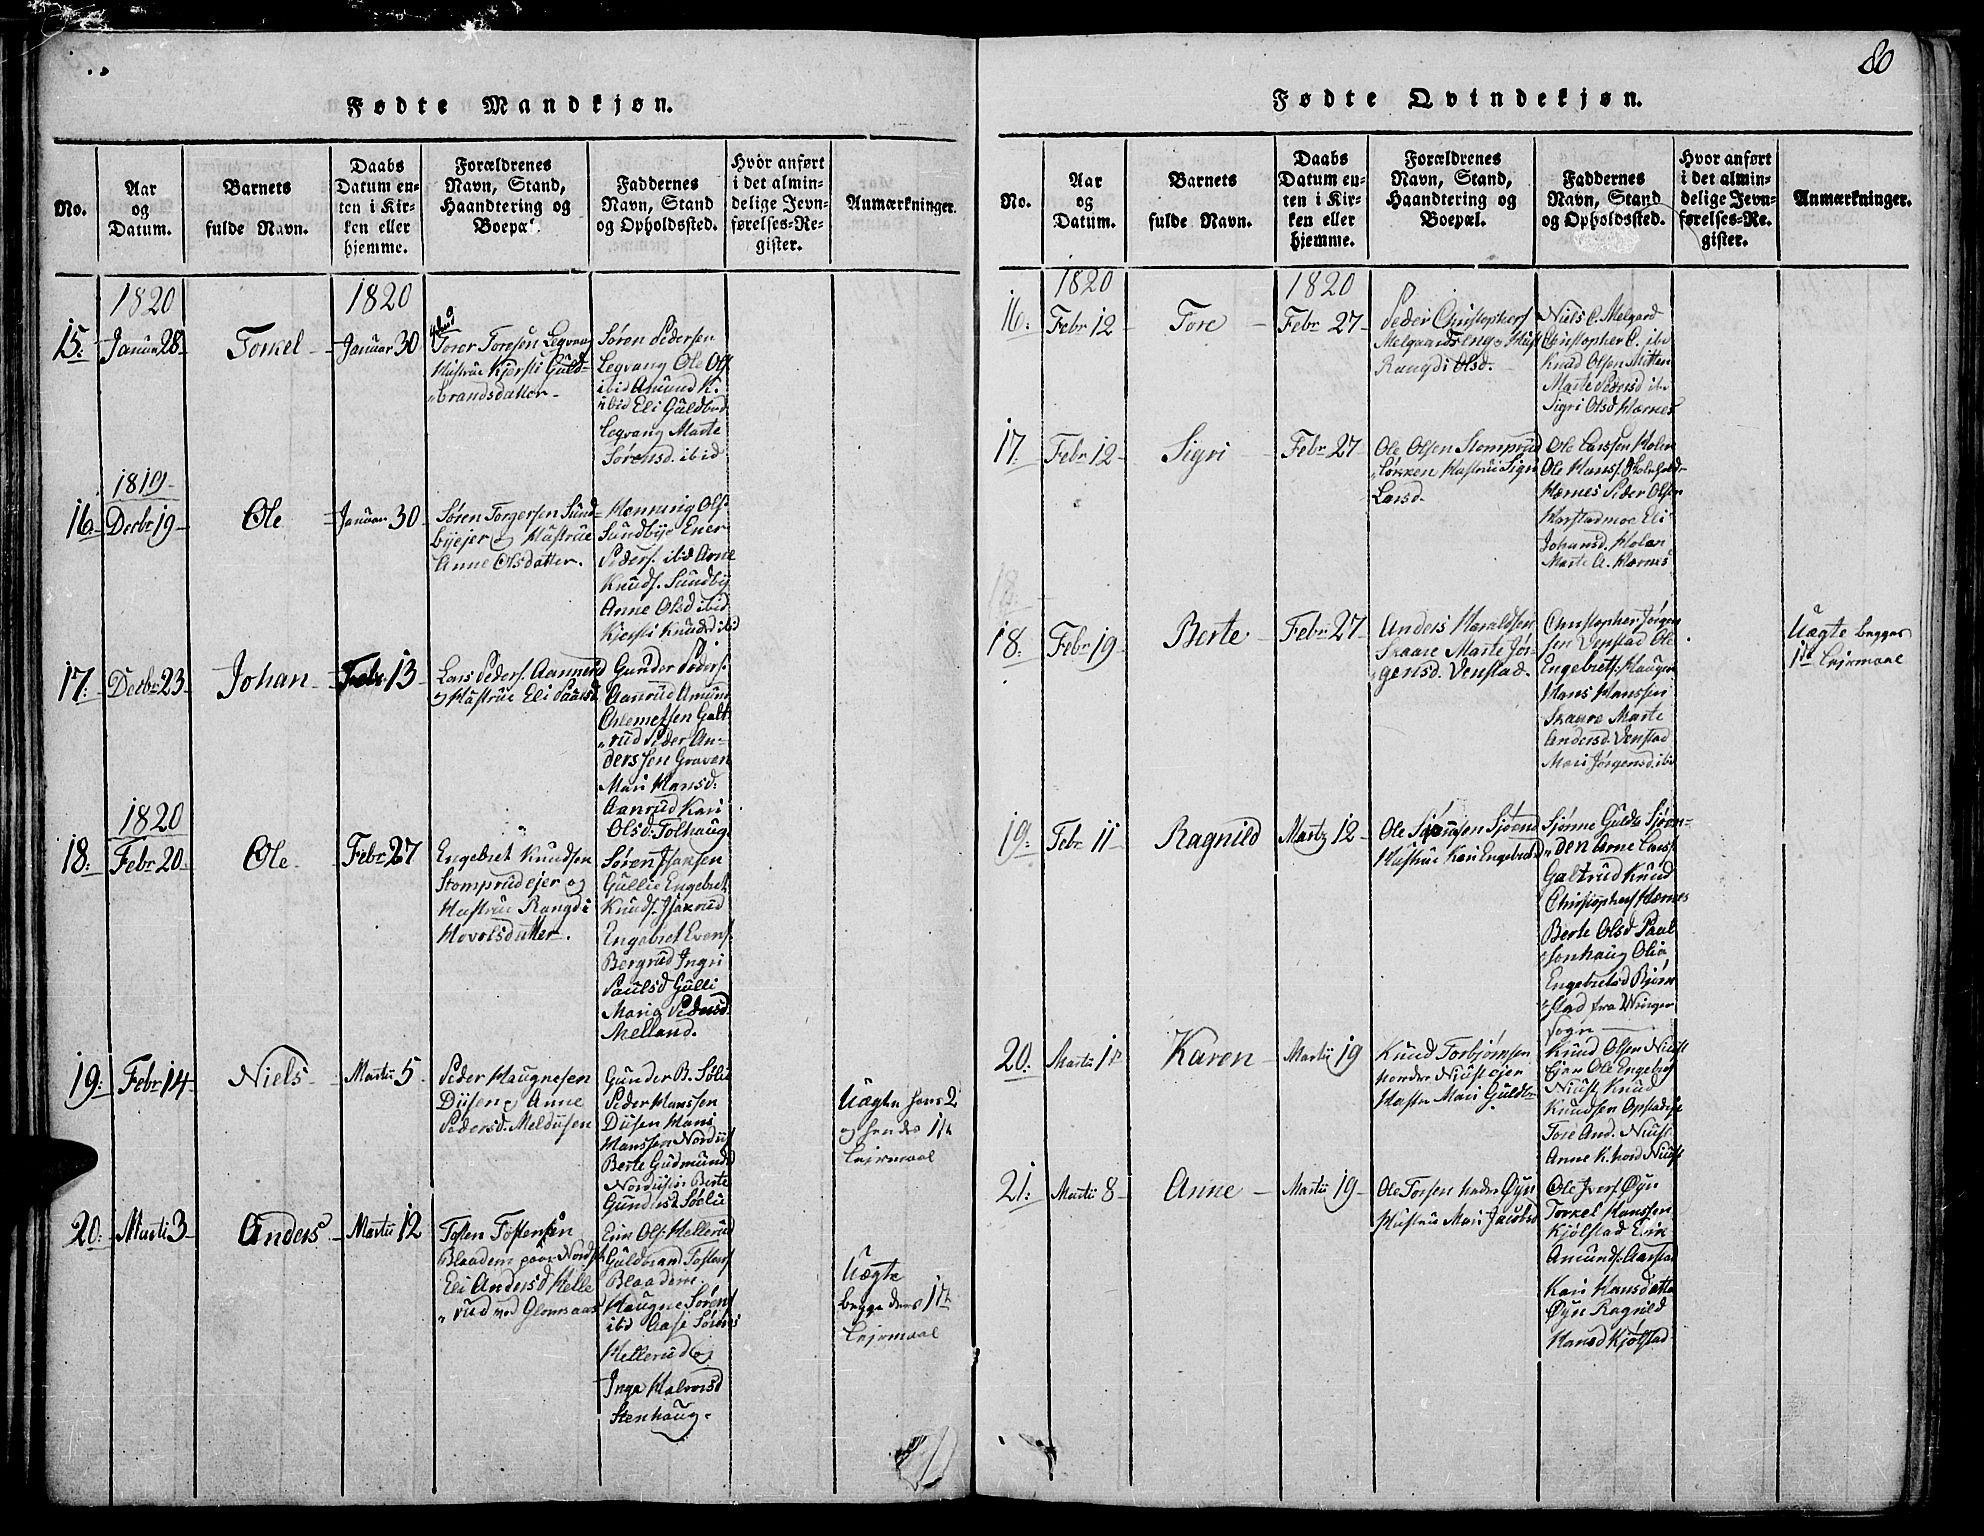 80
Fødte Mandkjøn.
No.
Aar
og
Datum.
Barnets
fulde Navn.
Daabs
Datum en-
ten i Kir-
ken eller
hjemme.
Forældrenes
Navn, Stand,
Haandtering og
Boepæl.
Faddernes
Navn, Stand
og Opholdssted.
Hvor anført
i det almin-
delige Jevn-
førelses-Re-
gister.
Anmærkninger.
1820
1820
15.
Januar 28
Torkel
Januar 30
Torer Toresen Legvang
Hustrue Kjersti Guld-
brandsdatter
Søren Pedersen
Legvang Ole Ols
ibid Amund K.
ibid Eli Guldbrd
Legvang Marte
Sørensd. ibid
1819
16
Decbr 19
Ole
Januar 30
Søren Torgersen Sund-
byeejer og Hustrue
Anne Olsdatter.
Henning Ols
Sundbye Ener
Peders. ibid Arne
Knuds. Sundby
Anne Olsd ibid
Kjersti Knudsd ibid
17.
Decbr 23
Johan
Febr 13
Lars Peders. Aannerud
og Hustrue Eli Paulsd
Gunder Peders.
Aanrud Amund
Clemetsen Galt
rud Peder An-
derssen Graven
Mari Hansd.
Aanrud Kari
Olsd. Tolhaug
1820
18.
Febr 20
Ole
Febr. 27
Engebret Knudsen
Stomprudejer og
Hustrue Rangdi
Hovolsdatter.
Søren Isaksen
Gullie Engebret
Knuds. Isakrud
Engebret Evens.
Bergrud Ingri
Paulsd Gulli
Maria Pedersd
Melland.
19.
Febr 14
Niels
Martii 5
Peder Haugnesen
Disen og Anne
Pedersd. Meldiisen
Gunder B. Sølie
Peder Hanssen
Diisen Hans
Hanssen Nordiis
Berte Gudmundsd
Nordiisen Berte
Gundersd Sølie
Uægte hans 2
og hendes 1te
Lejermaal
20.
Martii 3
Anders
Martii 12
Tosten Tostensen
Blaadem Nordsk
Eli Andersd Helle
rud ved Glommaas
Erik Ols. Hellerud
Guldbrand Tostens
Blaadem
Haugne Sørens
ibid Aase Sørens
Hellerud og
Inge Halvorsd
Stenhaug.
Uægte
begge deres 1te
Lejermaal
Fødte Qvindekjøn.
No.
Aar
og
Datum.
Barnets
fulde Navn.
Daabs
Datum en-
ten i Kir-
ken eller
hjemme.
Forældrenes
Navn, Stand,
Haandtering og
Boepæl.
Faddernes
Navn, Stand
og Opholdssted.
Hvor anført
i det almin-
delige Jevn-
førelses-Re-
gister.
Anmærkninger.
1820
1820
16.
Febr 12
Tore
Febr 27
Peder Christophers
Melgaardseng og Hust
Rangdi Olsd.
Niels C. Melgard
Christopher C. ibd
Knud Olsen Mitten
Marte Pedersd ibd
Sigri Olsd Hernes
17.
Febr 12
Sigri
Febr 27
Ole Olsen Stomprud
Løkken Hustrue Sigri
Larsd.
Ole Larssen Holen
Ole Hans. Skoleholdr
Hernes Peder Olsen
Harstadmoe Eli
Johansd. Holen
Marte A. Hernes
18.
Febr 19
Berte
Febr 27
Anders Haraldsen
Skaare Marte Jør-
gensd. Venstad.
Christopher Jørgen
sen Venstad Ole
Engebrets. Haugen
Hans Hanssen
Skaare Marte
Andersd. Venstad
Mari Jørgensd. ibd
Uægte begges
1te Lejermaal
19.
Febr 11
Ragnild
Martz 12
Ole Sjønsen
Hustrue Kari Engebretsd
Sjønne Guldbr
Arne Lars.
Galtrud Knud
Christophers Hernes
Berte Olsd Paul
senhaug Olia
Engebretsd Bjørn
stad fra Winger
Sogn
20.
Martii
Karen
Martii 19
Knud Torbjørnsen
nordre Niustejer
Hustr Mari Guldbr
Knud Olsen Niust
Ejer Ole Engebret
Niust Knud
Knudsen Opstadeje
Tore And. Niust
Anne K. nord Niust
21.
Martii 8
Anne
Martii 19
Ole Torsen nedre Øyn
Hustrue Mari Jacobsd
Ole Ivers Øyn
Torkel Hanssen
Kjølstad Erik
Amunds. Aarstad
Kari Hansdatter
Øyn Ragnild
Hansd Kjølstad